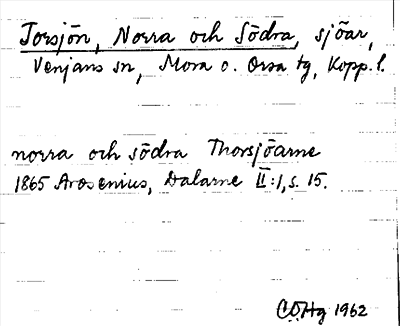 Torsjön, Norra och Södra, sjöar,
Venjans sn, Mora o. Orsa tg, Kopp. l.
norra och södra Thorsjöarne
1865 Arosenius, Dalarne II:1, s. 15.
CÖHg 1962